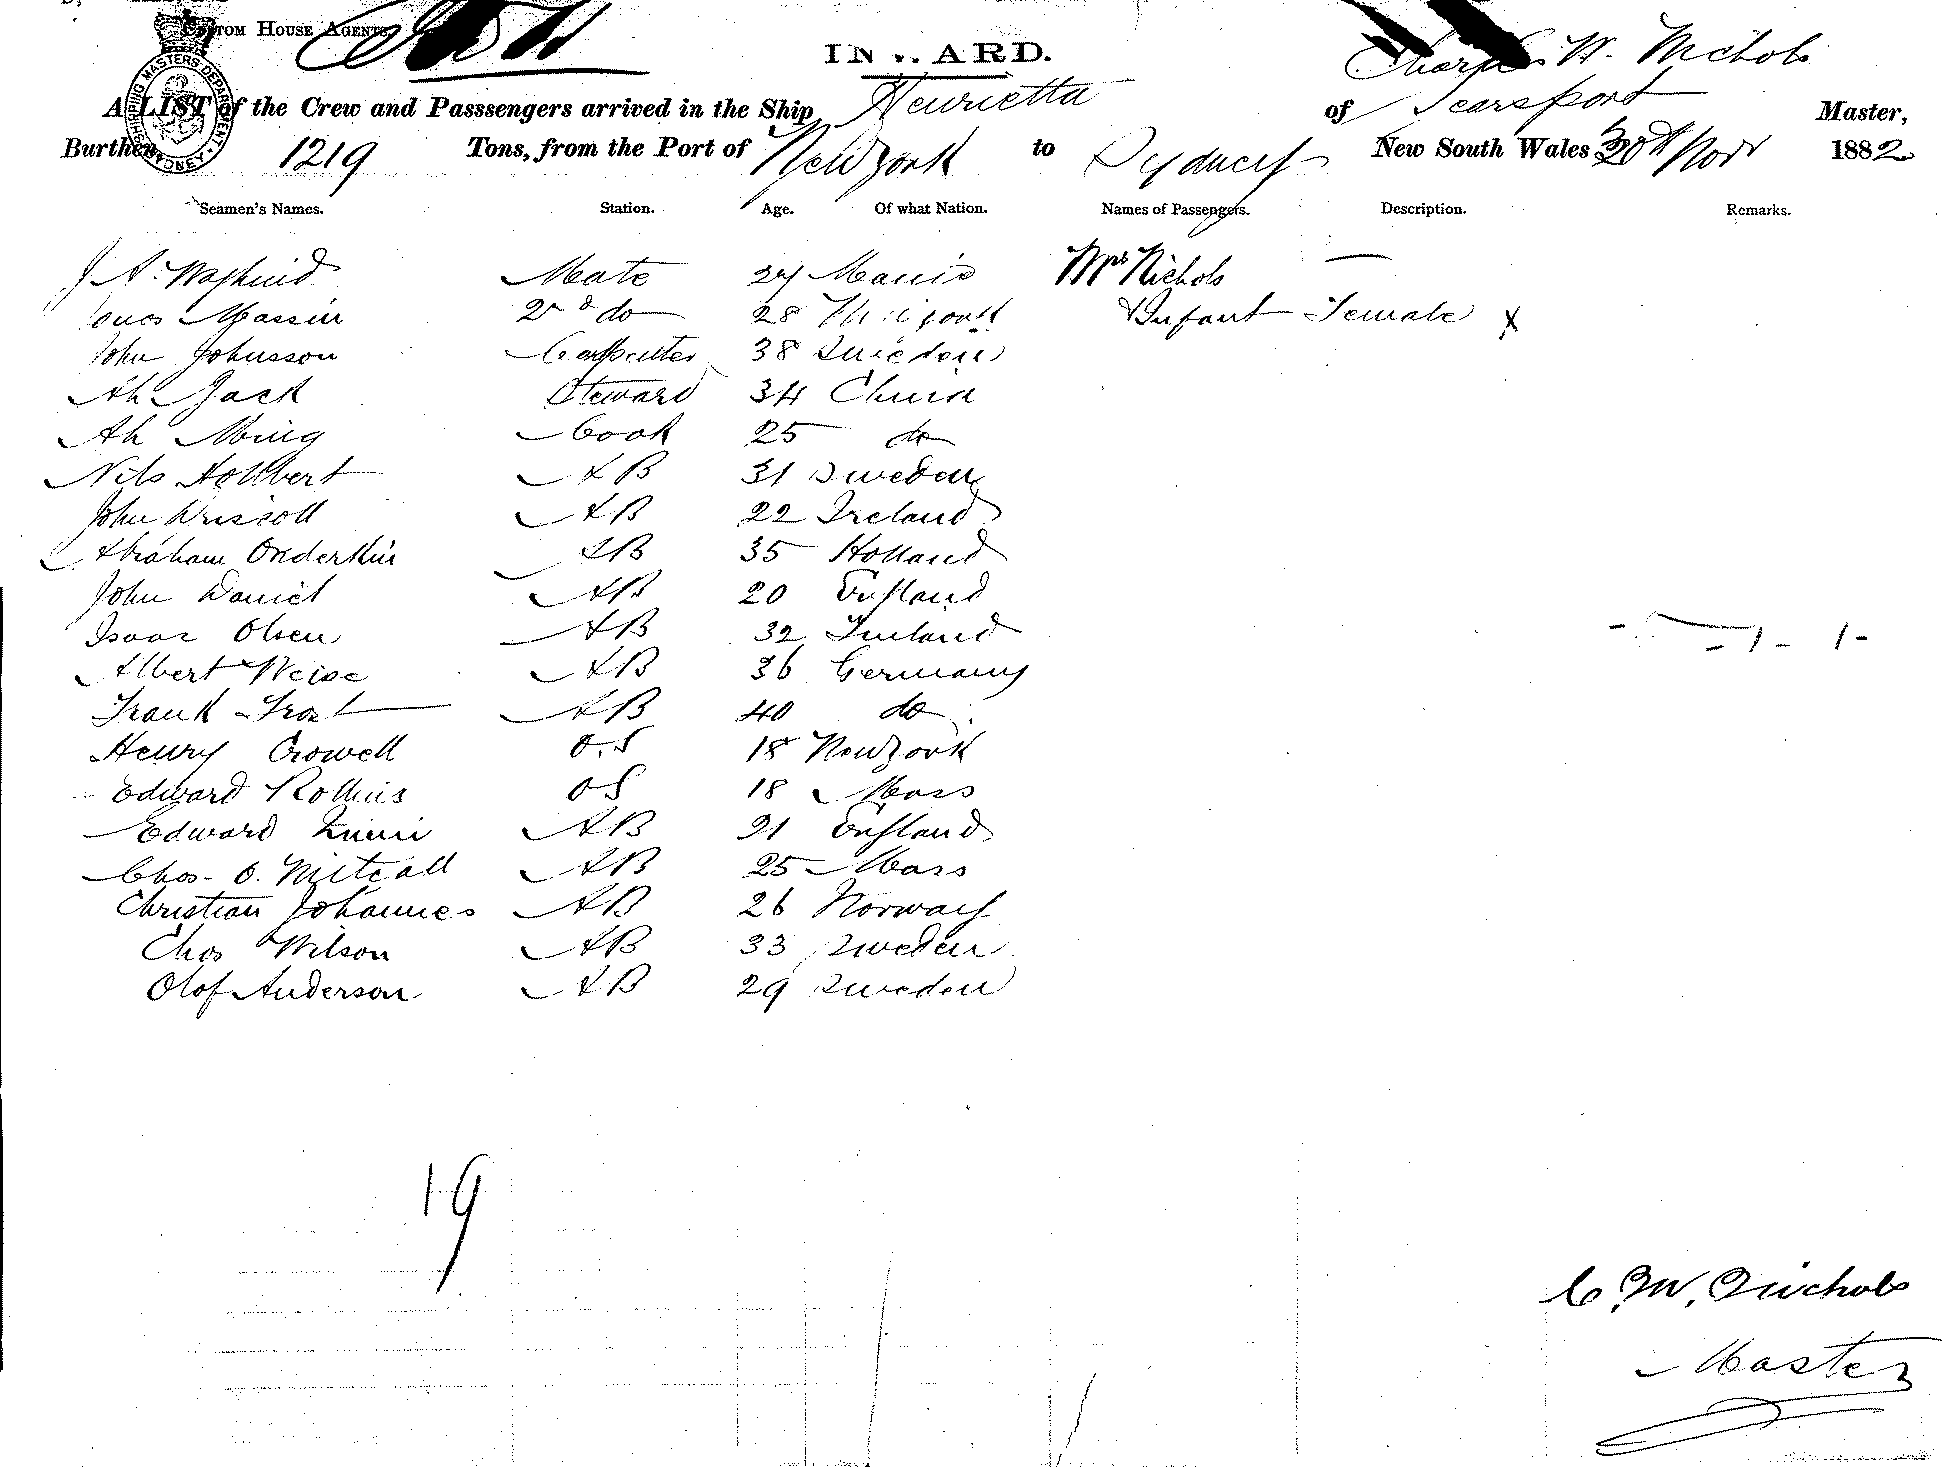 Custom House Agents
INWARD.
Charles W. Nichols
A LIST of the Crew and Passsengers arrived in the Ship Henrietta of Searsport Master,
Burthen, 1219 Tons, from the Port of New York to Sydney New South Wales 30th Novr 1882
SHIPPING MASTERS DEPARTMENT SYDNEY
Seamen's Names. Station. Age. Of what Nation. Names of Passengers. Description. Remarks.
J A. Mate 27 Mrs Nichols —
2nd do 28 & Infant Female x
John Johnsson Carpenter 38 Sweden
Ah Jack Steward 34 China
Ah Ming Cook 25 do
Nils Hollbert AB 31 Sweden
John Driscoll AB 22 Ireland
Abraham Onderkin AB 35 Holland
John Daniel AB 20 England
Isaac Olsen AB 32 Finland
Albert Weise AB 36 Germany
Frank Frost AB 40 do
Henry Crowell O.S 18 New York
Edward Rollins OS 18 Mass
Edward AB 21 England
Chas. O. Metcalf AB 25 Mass
Christian Johannes AB 26 Norway
Chas Wilson AB 33 Sweden
Olof Anderson AB 29 Sweden
19
C. W. Nichols
Master